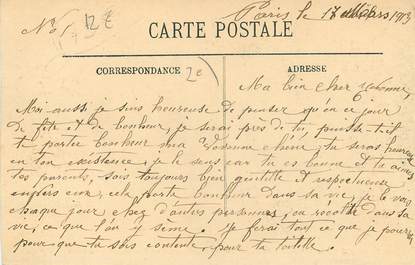 No 1 12€
Paris le 17 Mars 1913
CARTE POSTALE
CORRESPONDANCE 2€ ADRESSE
Ma bien chère Yvonne,
Moi aussi je suis heureuse de penser qu'en ce jour
de fête et de bonheur, je serai près de toi, puisse-t-il
te porter bonheur ma Yvonne chérie, tu seras heureuse
en ton existence, je le sens car tu es bonne et tu aimes
tes parents, sois toujours bien gentille et respectueuse
envers eux, cela porte bonheur dans sa vie, je le vois
chaque jour chez d'autres personnes, on récolte dans sa
vie, ce que l'on y sème. Je ferai tout ce que je pourrai
pour que tu sois contente, pour ta toilette.